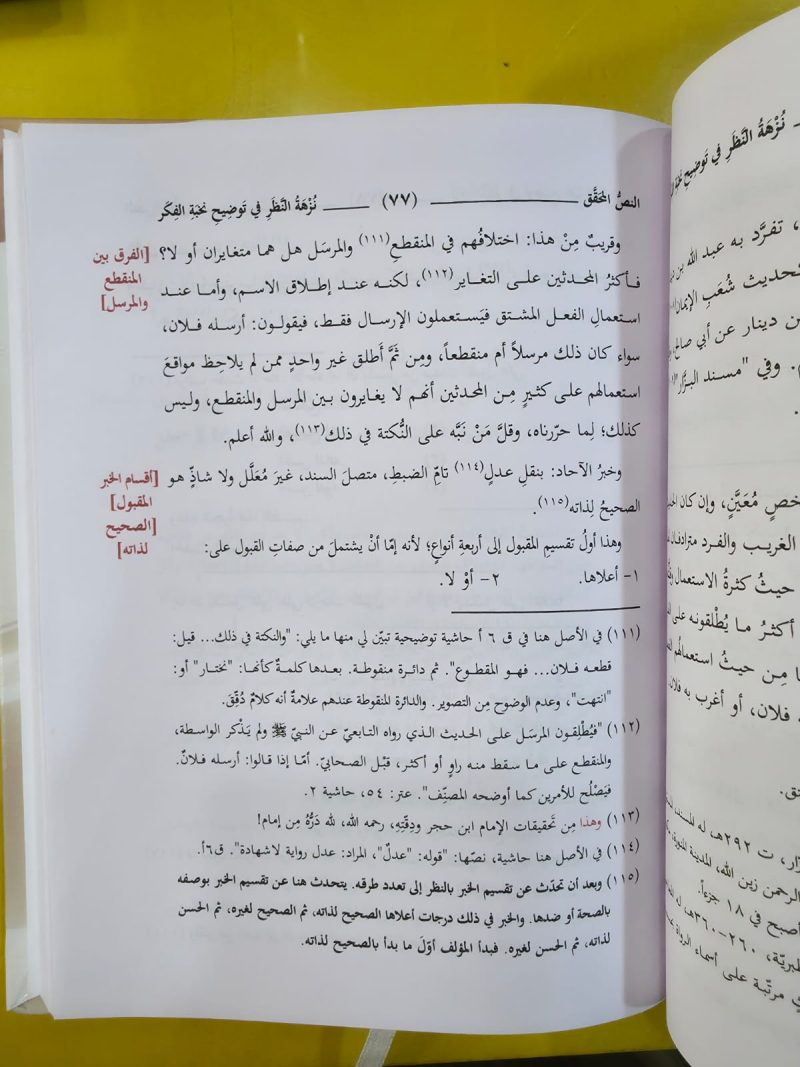 النصُّ المحَقَّق ــــــــ (٧٧) ــــــــ نُزْهَةُ النَّظَرِ في تَوضِيحِ نُخبَةِ الفِكَر
وقريبٌ مِنْ هذا: اختلافُهم في المنقطعِ(١١١) والمرسَل هل هما متغايران أو لا؟
[الفرق بين المنقطع والمرسل]
فأكثرُ المحَدثين على التغاير(١١٢)، لكنه عند إطلاق الاسم، وأما عند
استعمالِ الفعل المشتق فيَستعملون الإرسال فقط، فيقولون: أرسله فلان،
سواء كان ذلك مرسلاً أم منقطعاً، ومِن ثَمَّ أَطلق غير واحدٍ ممن لم يلاحِظ مواقعَ
استعمالهم على كثيرٍ مِن المحدثين أنهم لا يغايرون بين المرسل والمنقطع، وليس
كذلك؛ لِما حرّرناه، وقلَّ مَنْ نَبَّه على النُّكتة في ذلك(١١٣)، والله أعلم.
وخبرُ الآحاد: بنقلِ عدلٍ(١١٤) تامِّ الضبطِ، متصلَ السند، غيرَ مُعَلَّل ولا شاذٍّ هو
[أقسام الخبر المقبول]
[الصحيح لذاته]
الصحيحُ لِذاته(١١٥).
وهذا أولُ تقسيمِ المقبول إلى أربعةِ أنواعٍ؛ لأنه إمّا أنْ يشتملَ من صفاتِ القبول على:
١- أعلاها. ٢- أوْ لا.
(١١١) في الأصل هنا في ق ٦ أ حاشية توضيحية تبيّن لي منها ما يلي: "والنكتة في ذلك... قيل:
قطعه فلان... فهو المقطوع". ثم دائرة منقوطة. بعدها كلمةٌ كأنها: "نختار" أو:
"انتهت"، وعدم الوضوح مِن التصوير. والدائرة المنقوطة عندهم علامةُ أنه كلامٌ دُقِّقَ.
(١١٢) "فيُطْلِقون المرسَل على الحديث الذي رواه التابعيّ عن النبيّ ﷺ ولم يَذْكر الواسطة،
والمنقطع على ما سقط منه راوٍ أو أكثر، قبْل الصحابيّ. أمّا إذا قالوا: أرسله فلانٌ.
فيَصْلُح للأمرين كما أوضحه المصنِّف". عتر: ٥٤، حاشية ٢.
(١١٣) وهذا مِن تَحقيقات الإمام ابن حجر ودِقّتِهِ، رحمه الله، لله دَرُّهُ مِن إمام!
(١١٤) في الأصل هنا حاشية، نصّها: "قوله: "عدلٌ"، المراد: عدل رواية لاشهادة". ق٦أ.
(١١٥) وبعد أن تحدّث عن تقسيم الخبر بالنظر إلى تعدد طرقه. يتحدث هنا عن تقسيم الخبر بوصفه
بالصحة أو ضدها. والخبر في ذلك درجات أعلاها الصحيح لذاته، ثم الصحيح لغيره، ثم الحسن
لذاته، ثم الحسن لغيره. فبدأ المؤلف أوّلَ ما بدأ بالصحيح لذاته.